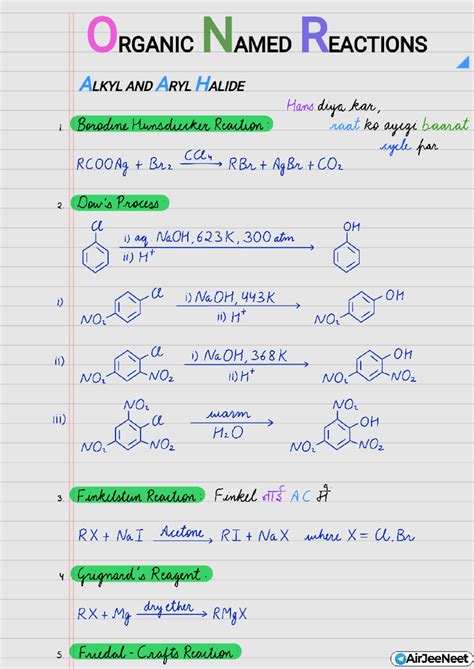 ORGANIC NAMED REACTIONS
ALKYL AND ARYL HALIDE
Hans diya kar,
raat ko ayegi baarat
cycle par
1. Borodine Hunsdiecker Reaction:
RCOOAg + Br₂ CCl₄ → RBr + AgBr + CO₂
2. Dow's Process
Cl i) aq NaOH, 623K, 300 atm OH
ii) H⁺
i) Cl i) NaOH, 443K OH
NO₂ ii) H⁺ NO₂
ii) Cl i) NaOH, 368K OH
NO₂ NO₂ ii) H⁺ NO₂ NO₂
NO₂ NO₂
iii) Cl warm OH
NO₂ NO₂ H₂O NO₂ NO₂
3. Finkelstein Reaction: Finkel नाई AC में
RX + NaI Acetone → RI + NaX where X = Cl, Br
4 Grignard's Reagent.
RX + Mg dry ether → RMgX
5. Friedal-Crafts Reaction
AirJeeNeet